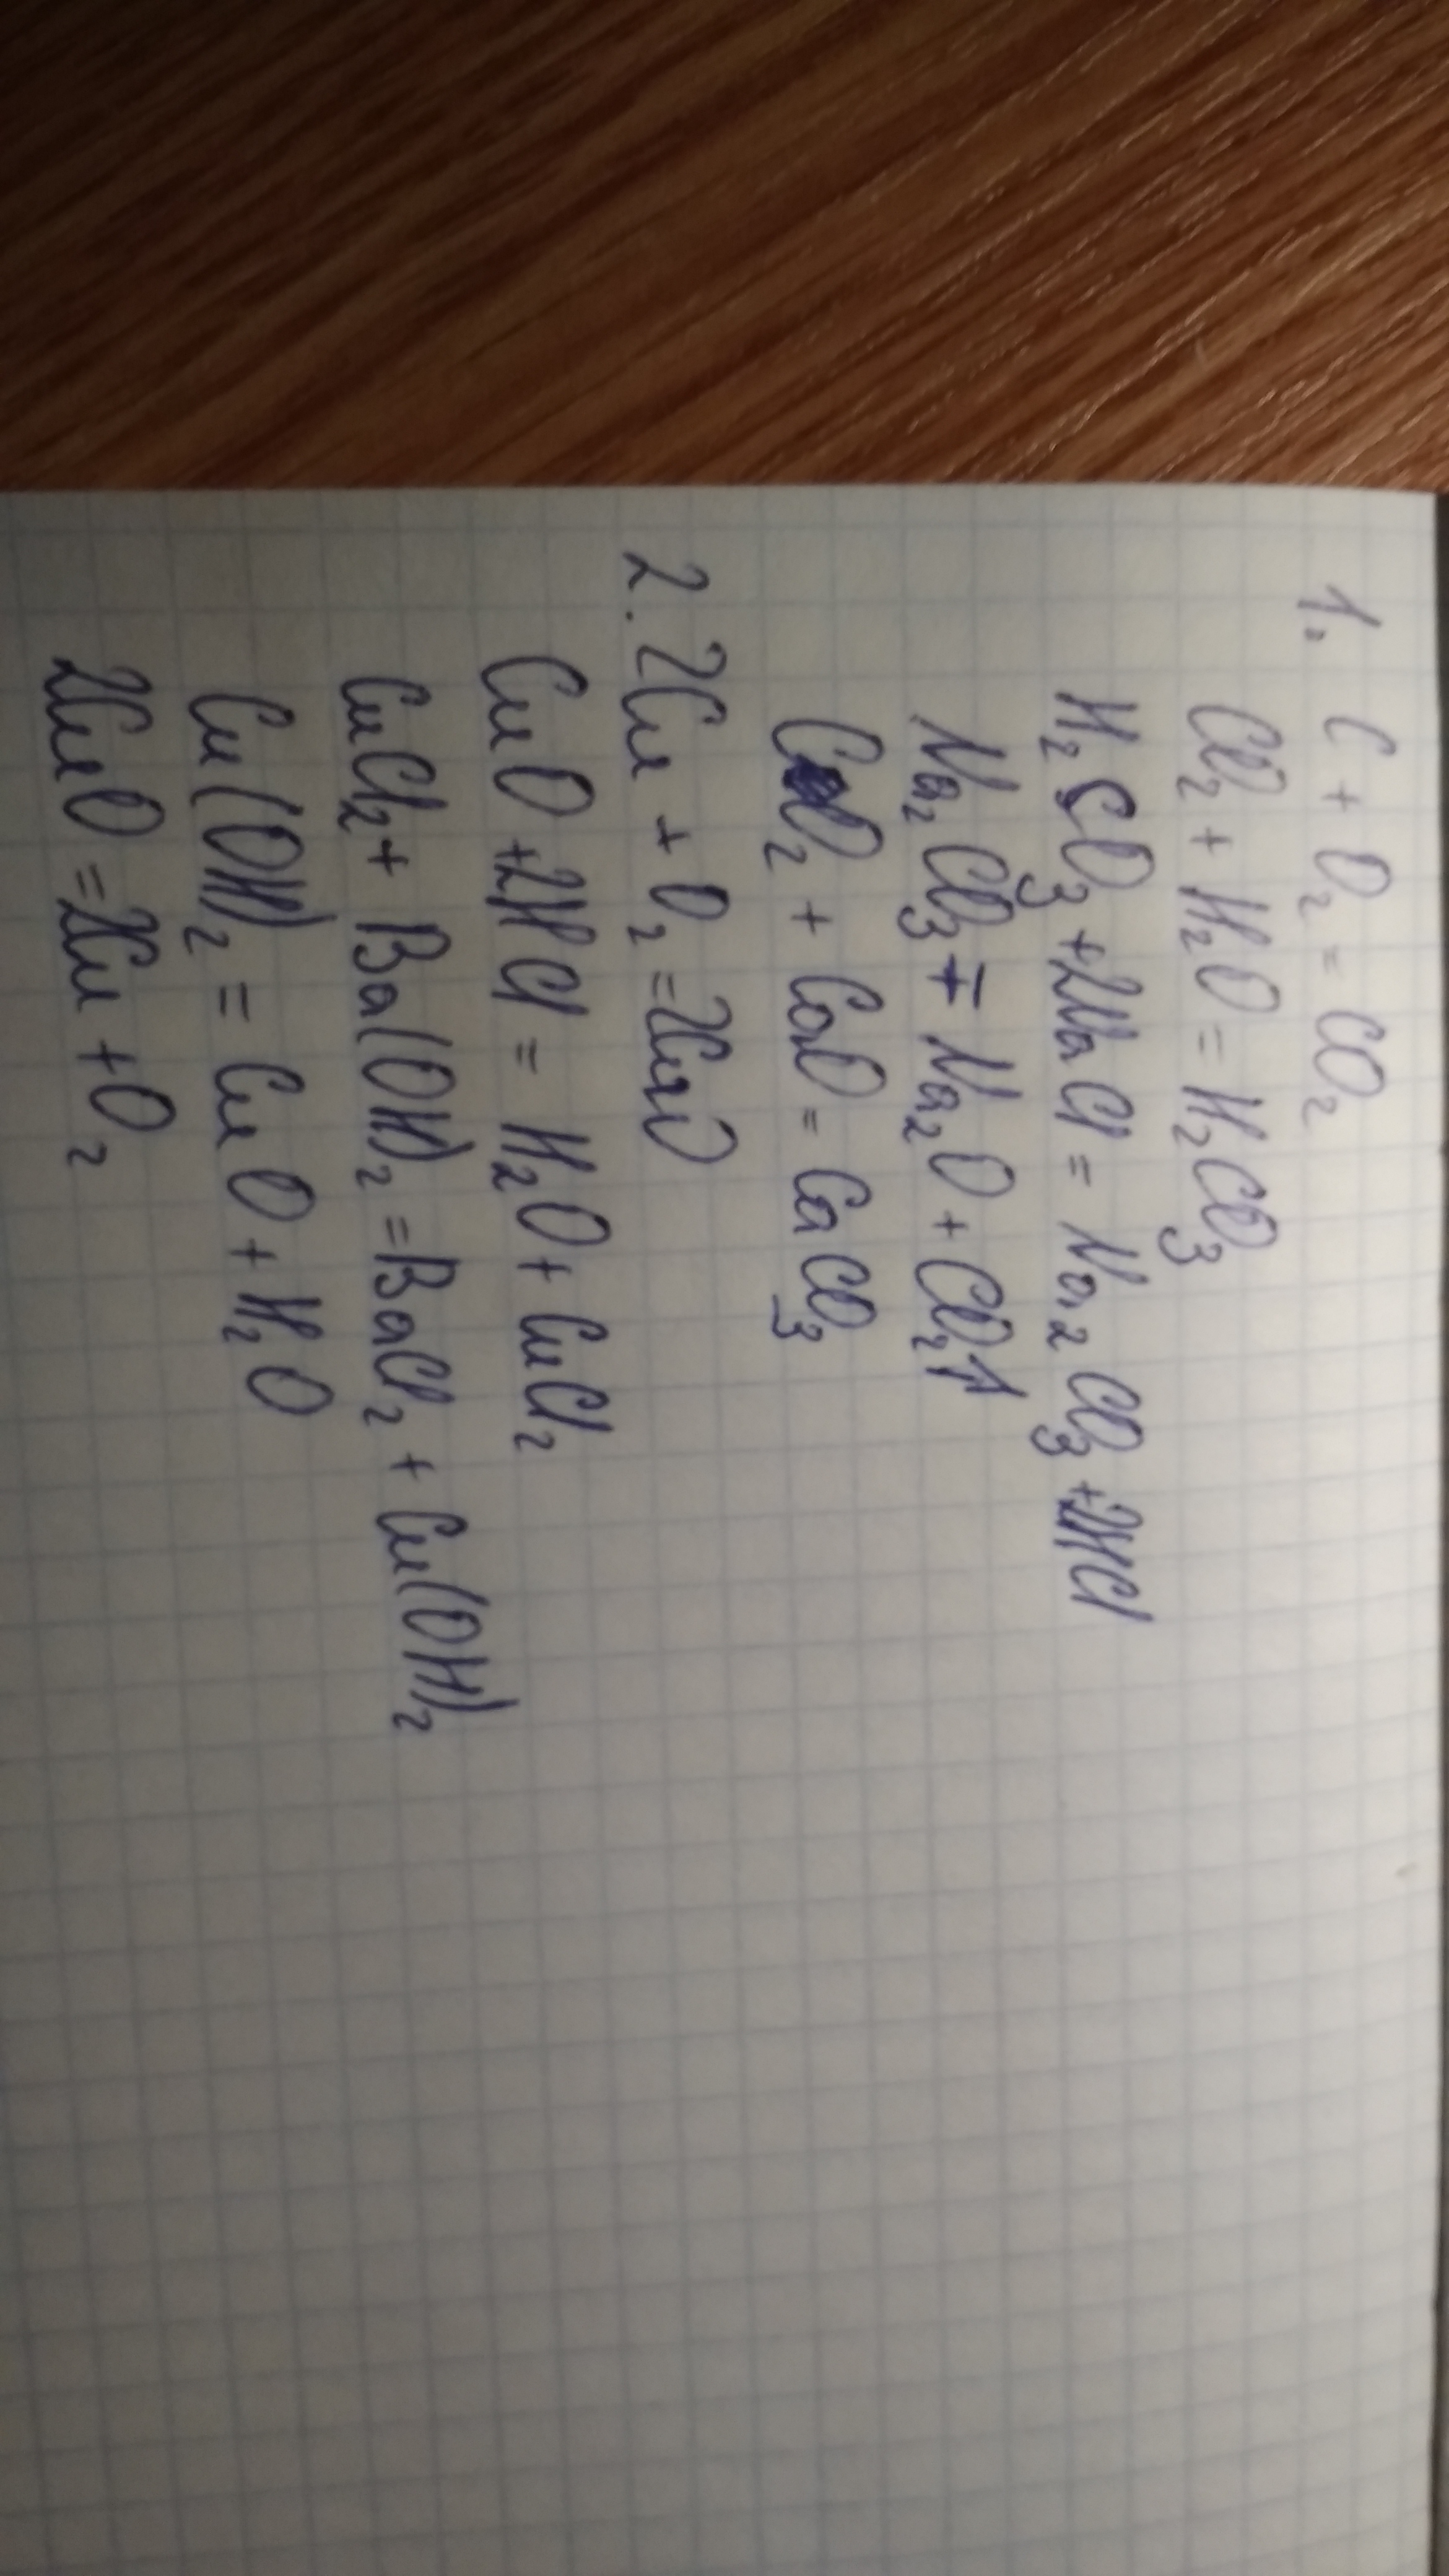 1. C + O₂ = CO₂
CO₂ + H₂O = H₂CO₃
H₂CO₃ + 2NaCl = Na₂CO₃ + 2HCl
Na₂CO₃ = Na₂O + CO₂↑
CO₂ + CaO = CaCO₃
2. 2Cu + O₂ = 2CuO
CuO + 2HCl = H₂O + CuCl₂
CuCl₂ + Ba(OH)₂ = BaCl₂ + Cu(OH)₂
Cu(OH)₂ = CuO + H₂O
2CuO = 2Cu + O₂